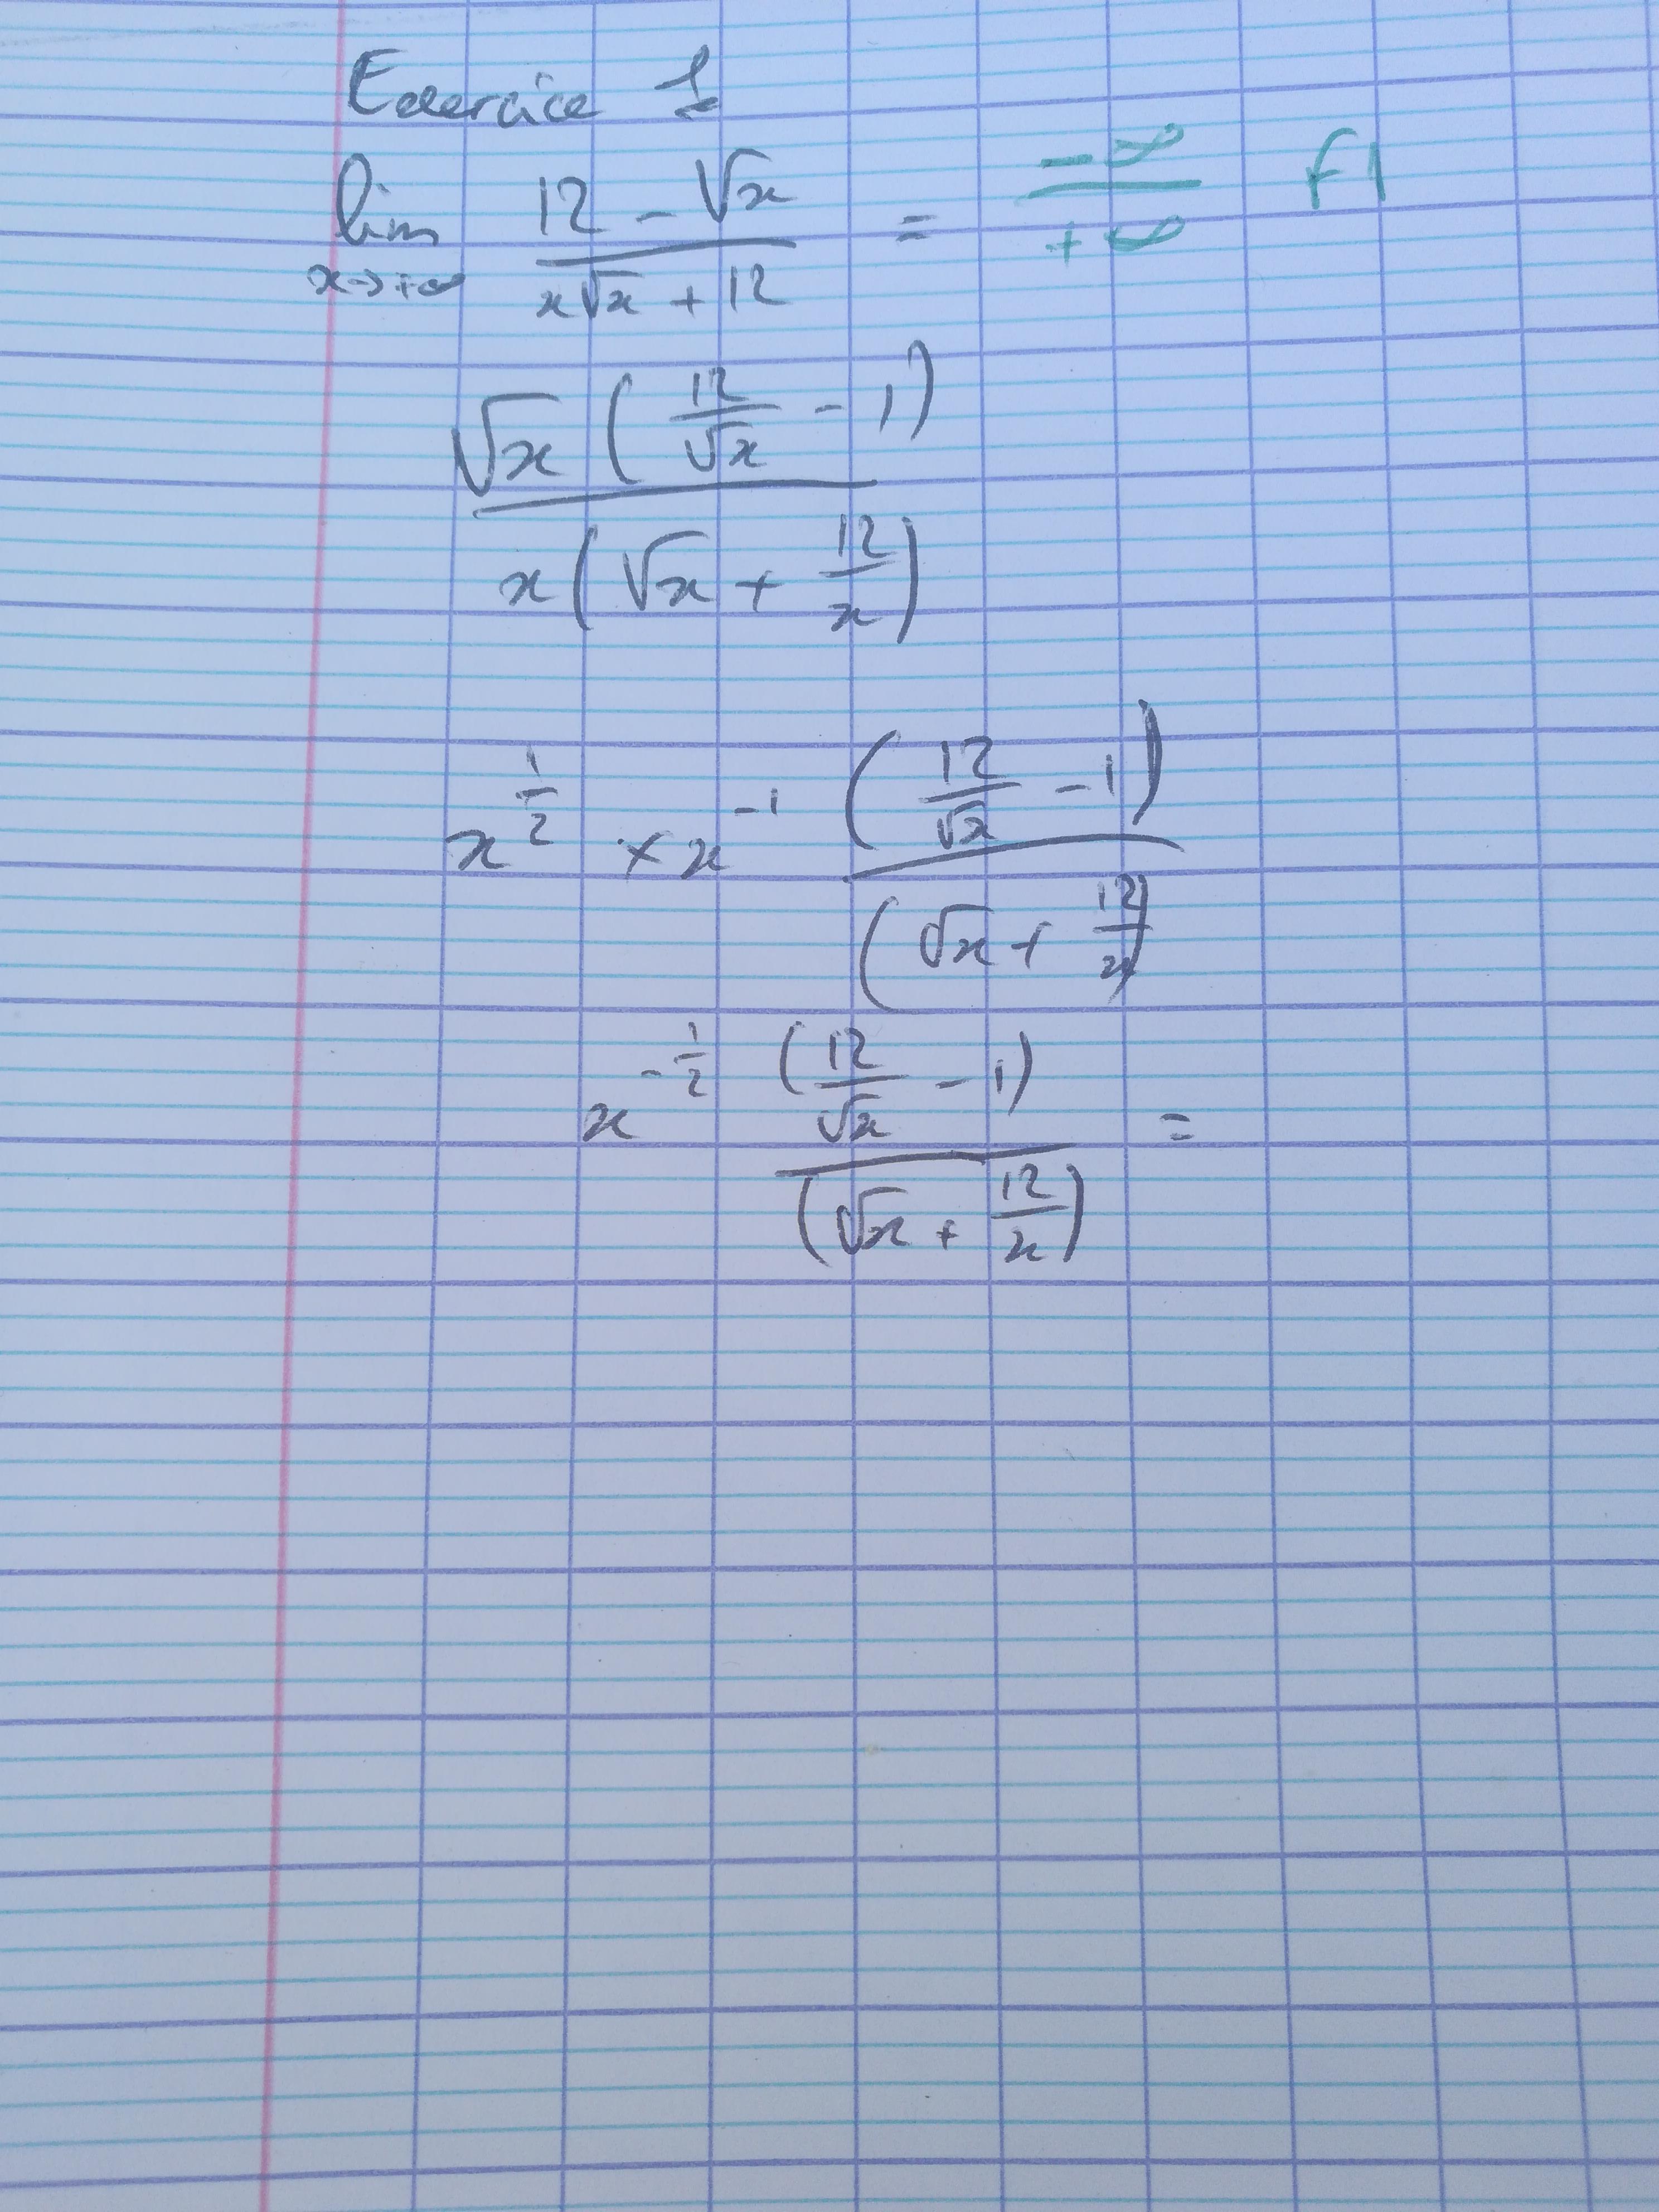 Exercice 1
lim x→+∞ (12 - √x)/(x√x + 12) = -∞/+∞ FI
√x (12/√x - 1)/x(√x + 12/x)
x^(1/2) × x^(-1) (12/√x - 1)/(√x + 12/x)
x^(-1/2) (12/√x - 1)/(√x + 12/x) =